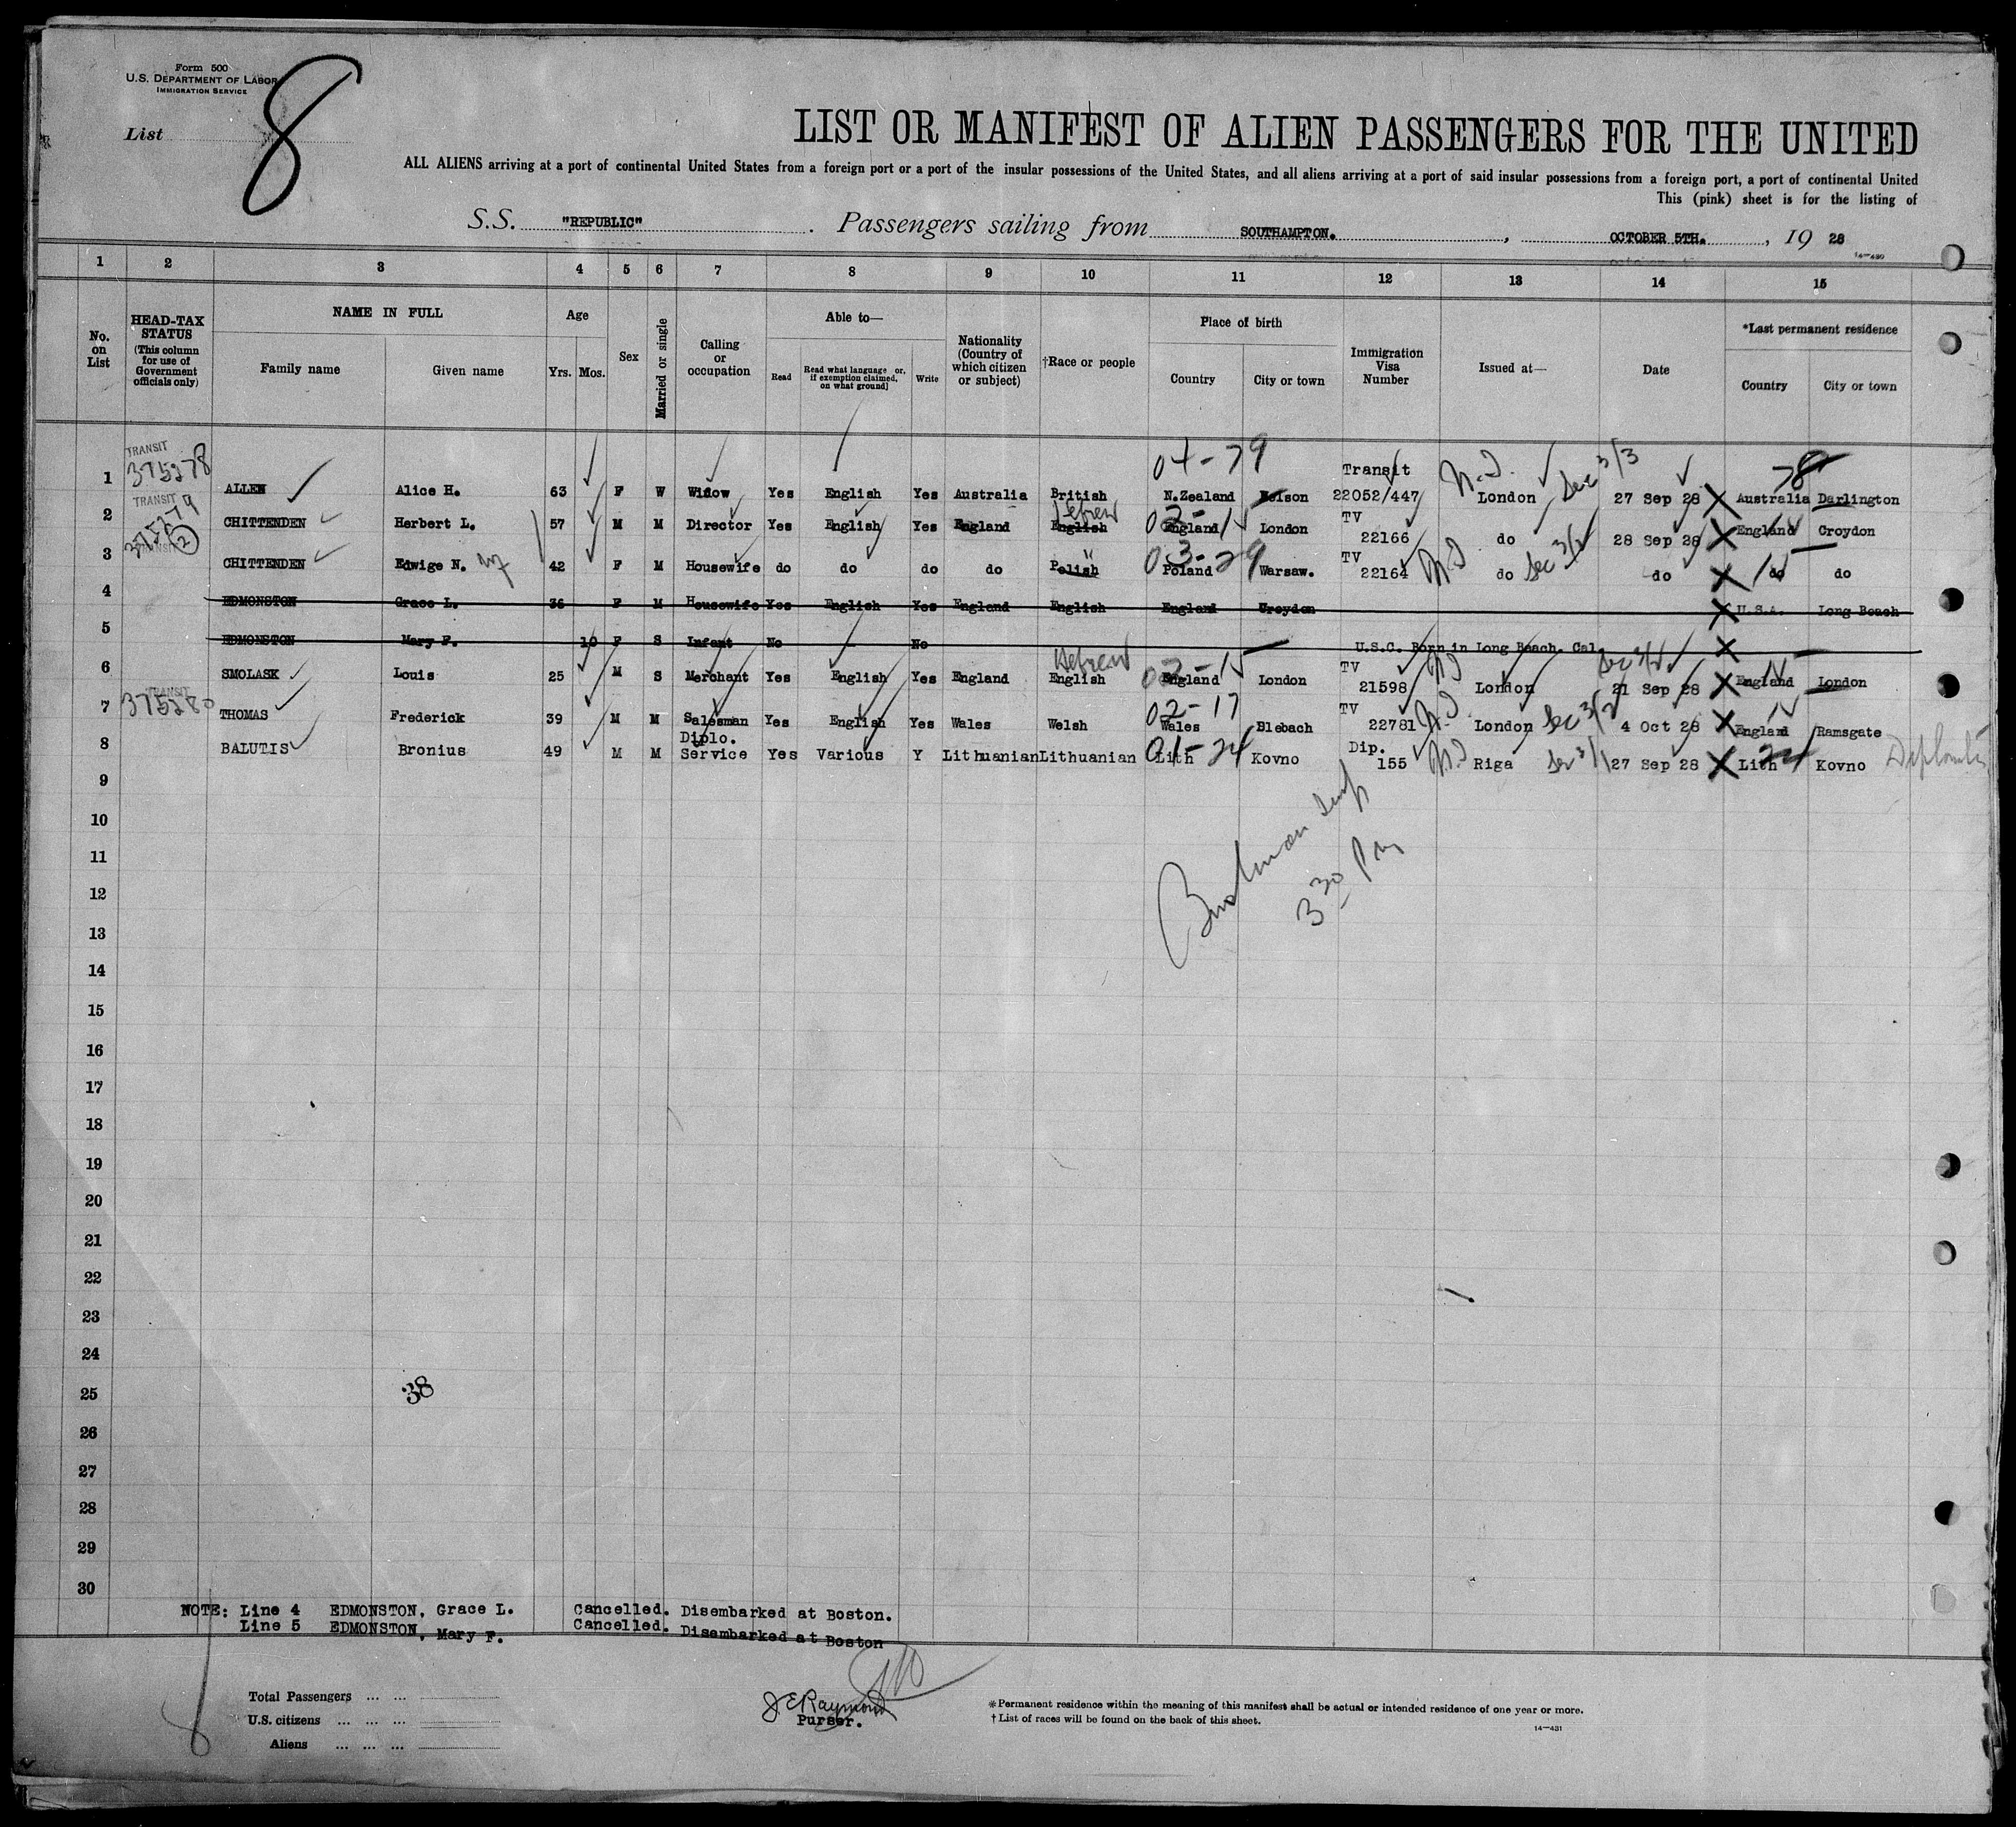 Form 500
U.S. DEPARTMENT OF LABOR
IMMIGRATION SERVICE
List 8
LIST OR MANIFEST OF ALIEN PASSENGERS FOR THE UNITED
ALL ALIENS arriving at a port of continental United States from a foreign port or a port of the insular possessions of the United States, and all aliens arriving at a port of said insular possessions from a foreign port, a port of continental United
This (pink) sheet is for the listing of
S.S. "REPUBLIC" . Passengers sailing from SOUTHAMPTON. , OCTOBER 5TH. , 19 28
14—430
1 2 3 4 5 6 7 8 9 10 11 12 13 14 15
No. on List
HEAD-TAX STATUS (This column for use of Government officials only)
NAME IN FULL
Family name Given name
Age
Yrs. Mos.
Sex
Married or single
Calling or occupation
Able to—
Read Read what language or, if exemption claimed, on what ground] Write
Nationality (Country of which citizen or subject)
†Race or people
Place of birth
Country City or town
Immigration Visa Number
Issued at—
Date
*Last permanent residence
Country City or town
TRANSIT 375278 04-79 Transit 78
1 ALLEN Alice H. 63 F W Widow Yes English Yes Australia British N.Zealand Nelson 22052/447 London Sec 3/3 27 Sep 28 X Australia Darlington
TRANSIT 375279 Hebrew TV
2 CHITTENDEN Herbert L. 57 M M Director Yes English Yes England English England London 22166 do 28 Sep 28 X England Croydon
TRANSIT 2 " 03-29 TV
3 CHITTENDEN Edwige N. 42 F M Housewife do do do do Polish Poland Warsaw. 22164 do do X do do
4 EDMONSTON Grace L. 36 F M Housewife Yes English Yes England English England Croydon X U.S.A. Long Beach
5 EDMONSTON Mary F. 10 F S Infant No — No U.S.C. Born in Long Beach. Cal. X
Hebrew TV
6 SMOLASK Louis 25 M S Merchant Yes English Yes England English England London 21598 London 21 Sep 28 X England London
TRANSIT 375280 02-17 TV
7 THOMAS Frederick 39 M M Salesman Yes English Yes Wales Welsh Wales Blebach 22781 London 4 Oct 28 X England Ramsgate
Diplo. Dip.
8 BALUTIS Bronius 49 M M Service Yes Various Y Lithuanian Lithuanian Lith 01-24 Kovno 155 Riga 27 Sep 28 X Lith 24 Kovno
9
10
11
12
3 30 PM
13
14
15
16
17
18
19
20
21
22
23
24
25 38
26
27
28
29
30
NOTE: Line 4 EDMONSTON, Grace L. Cancelled. Disembarked at Boston.
Line 5 EDMONSTON, Mary F. Cancelled. Disembarked at Boston
Total Passengers ... ...
U.S. citizens ... ... ...
Aliens ... ... ...
8
J.E Raymond
Purser.
*Permanent residence within the meaning of this manifest shall be actual or intended residence of one year or more.
†List of races will be found on the back of this sheet.
14—431